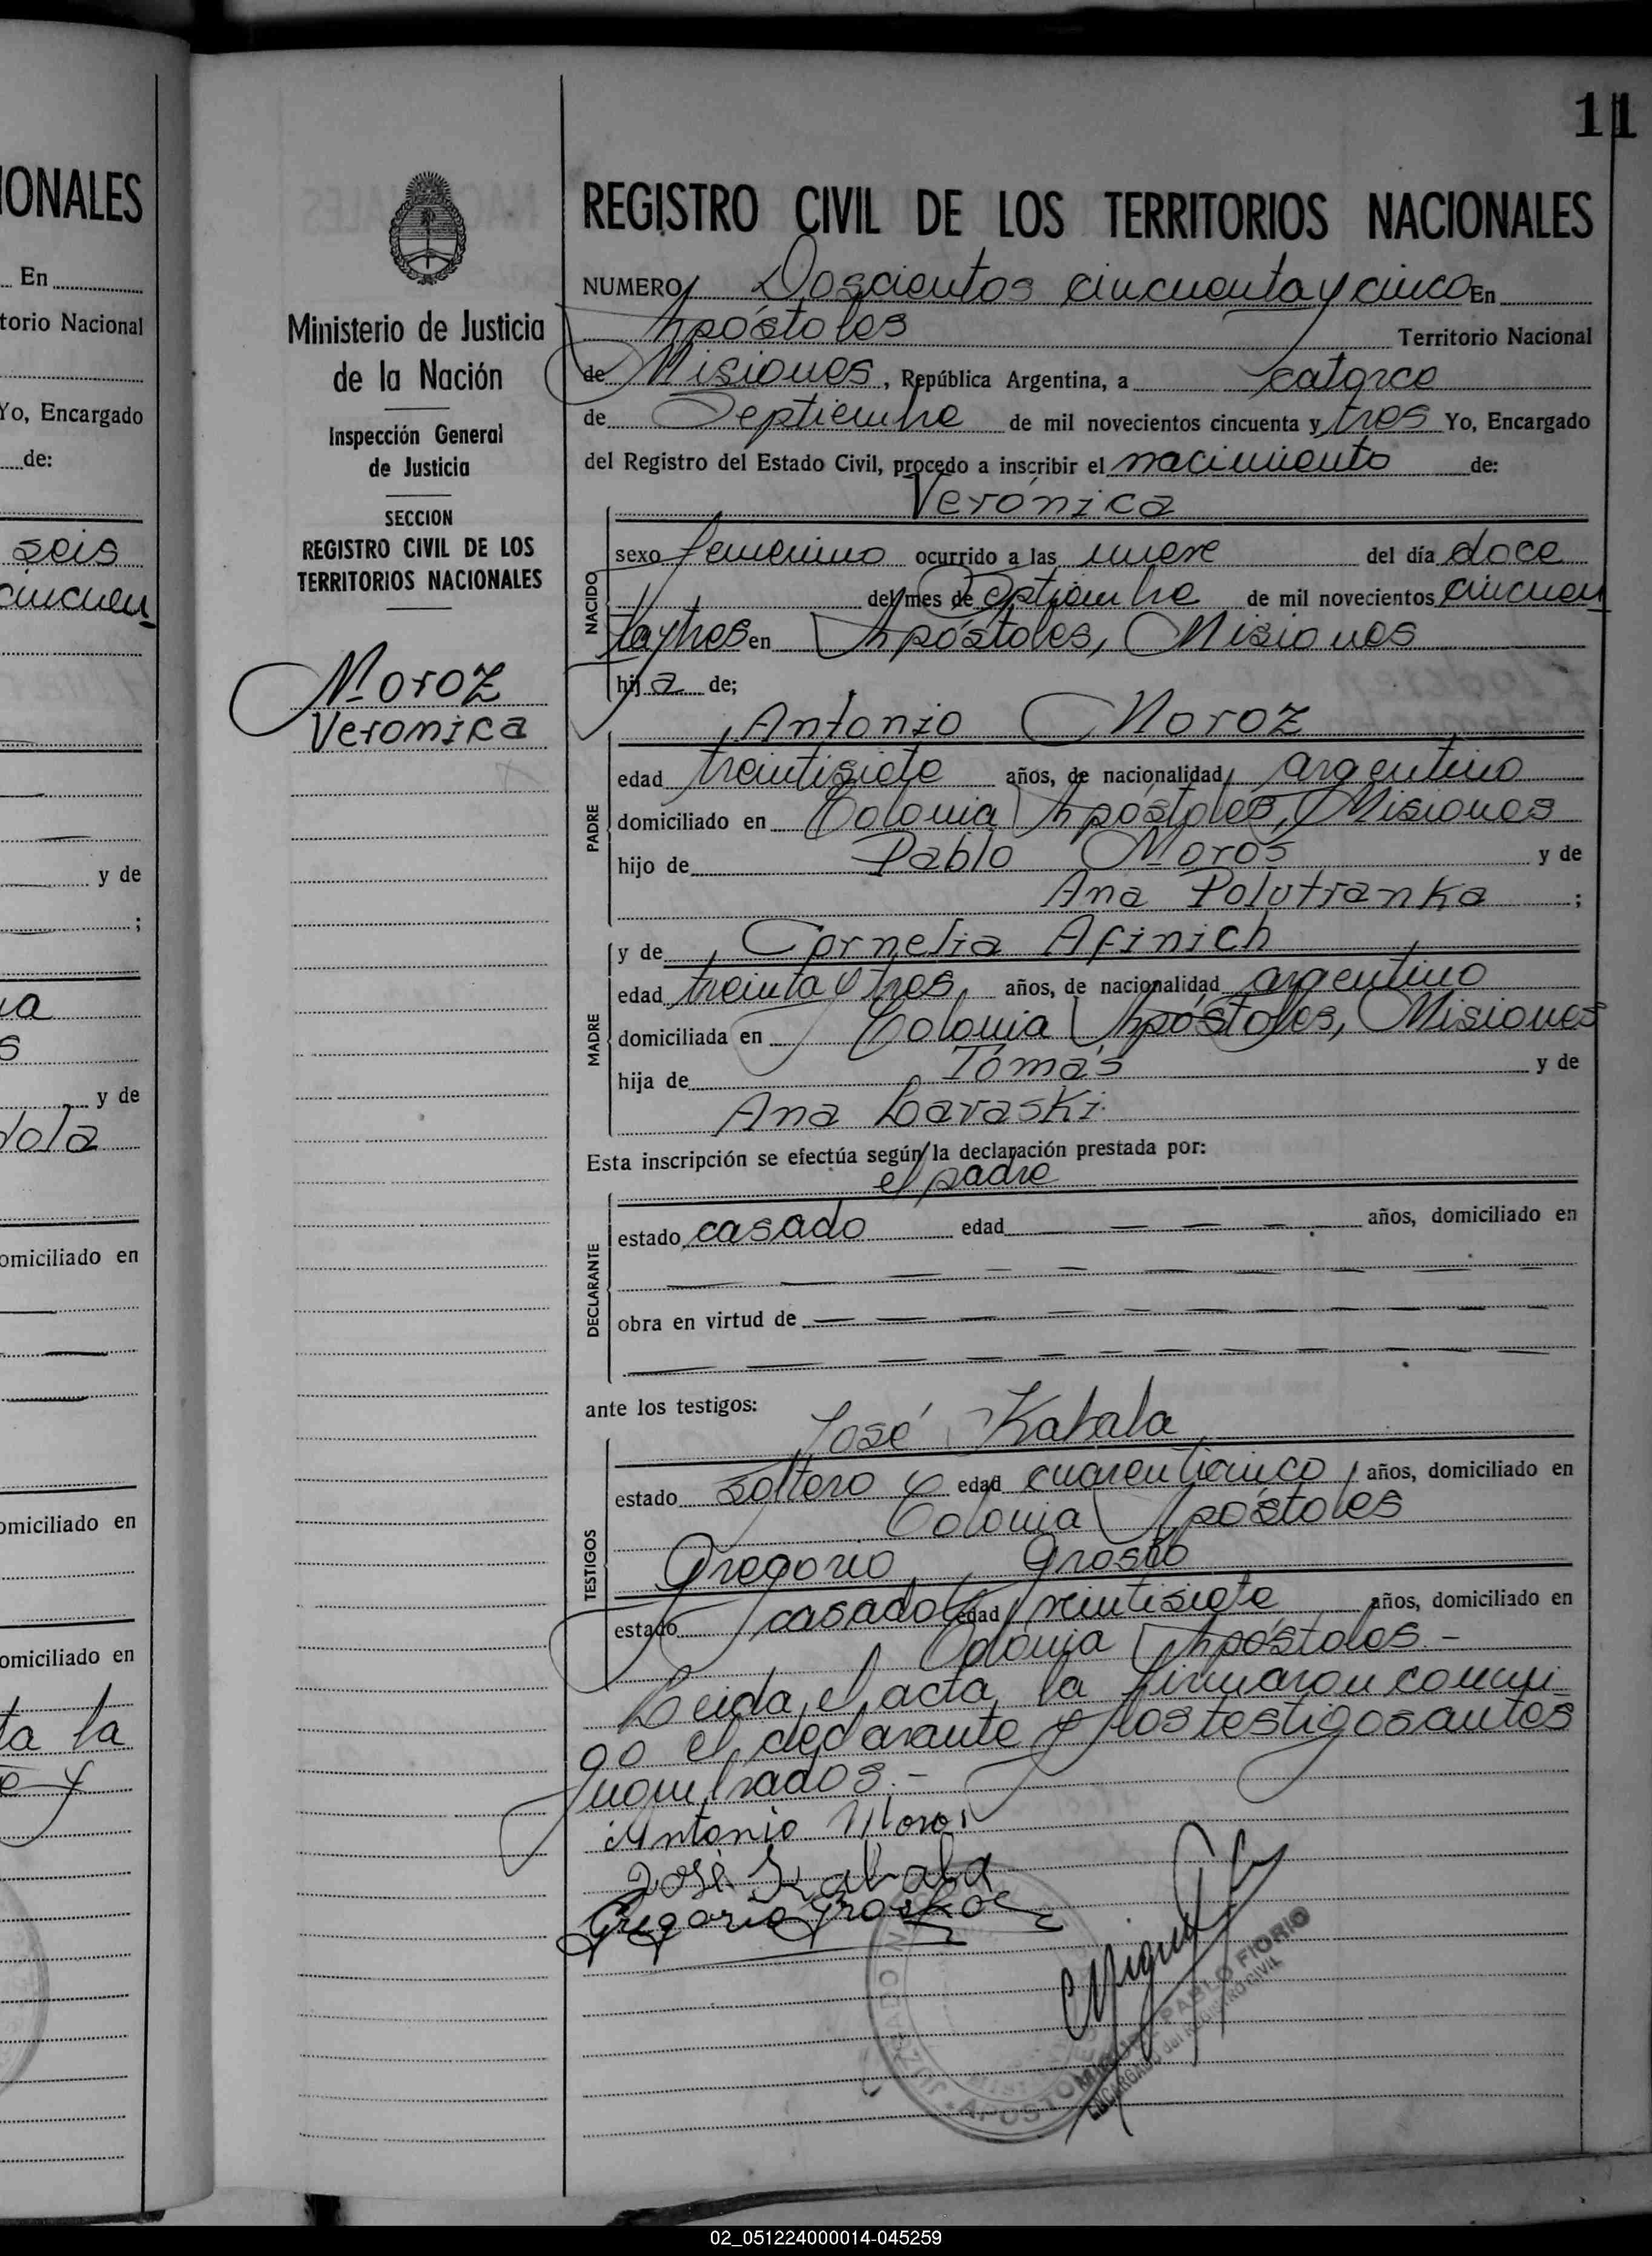 11
IONALES
En
torio Nacional
Yo, Encargado
de:
seis
cincuen
y de
;
y de
omiciliado en
omiciliado en
omiciliado en
ta la
Ministerio de Justicia
de la Nación
Inspección General
de Justicia
SECCION
REGISTRO CIVIL DE LOS
TERRITORIOS NACIONALES
Moroz
Veronica
REGISTRO CIVIL DE LOS TERRITORIOS NACIONALES
NUMERO Doscientos cincuenta y cinco En
Apóstoles Territorio Nacional
de Misiones, República Argentina, a catorce
de Septiembre de mil novecientos cincuenta y tres Yo, Encargado
del Registro del Estado Civil, procedo a inscribir el nacimiento de:
Verónica
NACIDO
sexo femenino ocurrido a las nueve del día doce
del mes de Septiembre de mil novecientos cincuen
taytres en Apóstoles, Misiones
hij a de;
Antonio Moroz
PADRE
edad treintisiete años, de nacionalidad argentino
domiciliado en Colonia Apóstoles, Misiones
hijo de Pablo Morós y de
Ana Polutranka ;
y de Cornelia Afinich
MADRE
edad treinta y tres años, de nacionalidad argentino
domiciliada en Colonia Apóstoles, Misiones
hija de Tomás y de
Ana Lavaski
Esta inscripción se efectúa según la declaración prestada por:
el padre
DECLARANTE
estado casado edad años, domiciliado en
obra en virtud de
ante los testigos:
José Kabala
TESTIGOS
estado soltero edad cuarenticinco años, domiciliado en
Colonia Apóstoles
Gregorio
estado casado edad años, domiciliado en
Colonia Apóstoles.-
Leida el acta, la firmaron conmi-
go el declarante y los testigos antes
nombrados.-
Antonio Moroz
José Kabala
Gregorio
Miguel
MIGUEL PABLO FIORIO
ENCARGADO del REGISTRO CIVIL
02_051224000014-045259